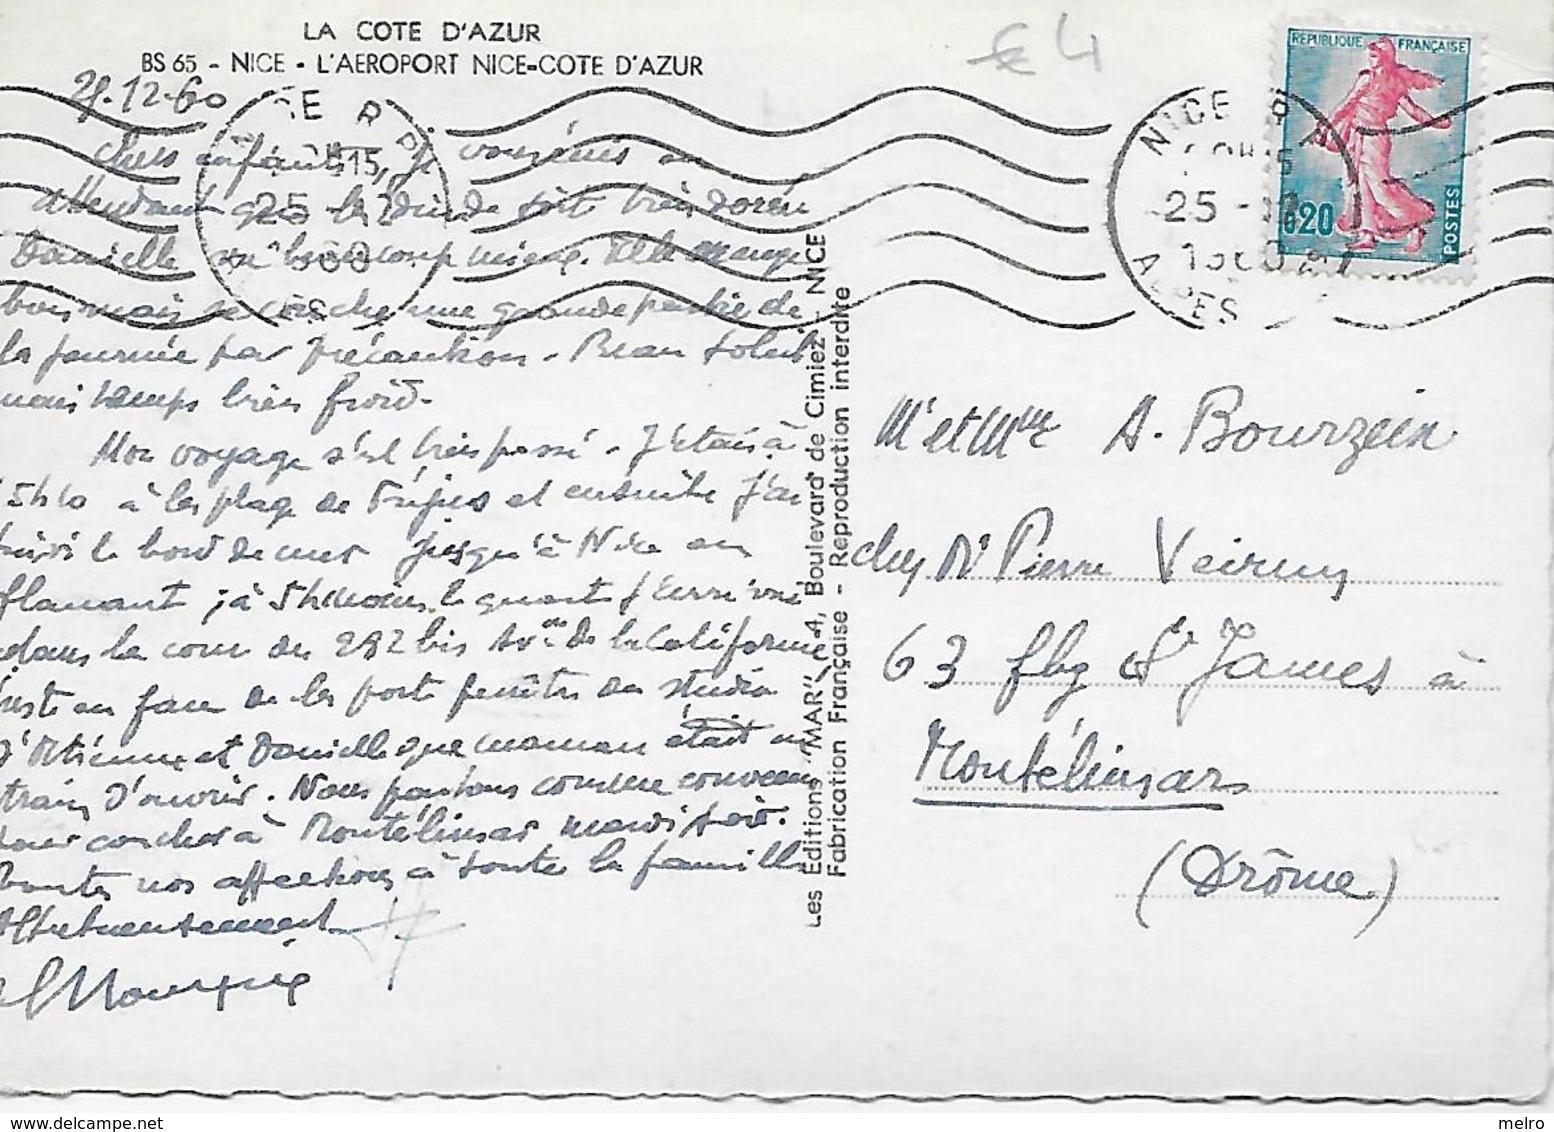 LA COTE D'AZUR
BS 65 - NICE - L'AEROPORT NICE-COTE D'AZUR
€ 4
REPUBLIQUE FRANÇAISE
0,20
POSTES
NICE R.P.
25 - 12
1960
ALPES
25.12.60
Chers enfants, je vous écris en
attendant que la dinde soit bien dorée
Danielle va beaucoup mieux. Elle mange
bien mais se couche une grande partie de
la journée par précaution. Beau soleil
mais temps bien froid.
Mon voyage s'est bien passé. J'étais à
15h10 à la plage de Fréjus et ensuite j'ai
suivi le bord de mer jusqu'à Nice en
flanant ; à 5h moins le quart j'arrivai
dans la cour du 292 bis Av. de la Californie
juste en face de la porte fenêtre du studio
d'Etienne et Danielle que maman était en
train d'ouvrir. Nous partons comme convenu
pour coucher à Montélimar mardi soir.
Toutes nos affections à toute la famille
Affectueusement
Les Éditions "MAR", 4, Boulevard de Cimiez - NICE
Fabrication Française - Reproduction interdite
Mr et Mme A. Bourzein
chez Mr Pierre
63 fbg St James à
Montélimar
(Drôme)
melro